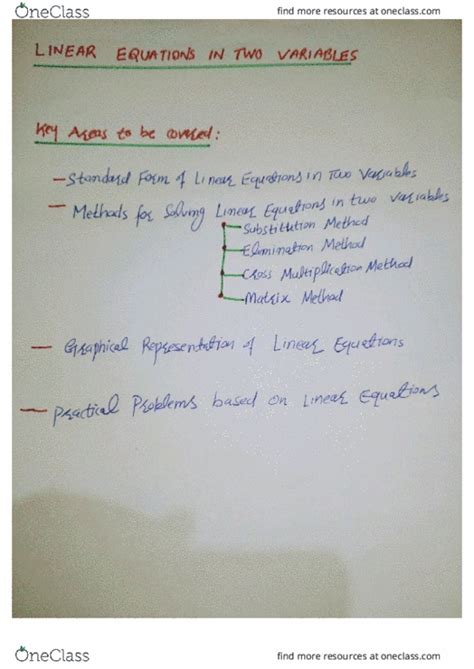 OneClass find more resources at oneclass.com
LINEAR EQUATIONS IN TWO VARIABLES
Key Areas to be covered:
— Standard Form of Linear Equations in Two Variables
— Methods for Solving Linear Equations in two variables
— Substitution Method
— Elimination Method
— Cross Multiplication Method
— Matrix Method
— Graphical Representation of Linear Equations
— Practical Problems based on Linear Equations
OneClass find more resources at oneclass.com